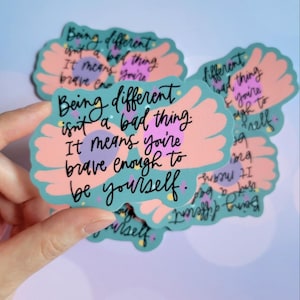 Being different
isn't a bad thing.
It means you're
brave enough to
be yourself.
Being different
isn't a bad thing
It means you're
brave enough
different
bad thing
means you're
enough to
yourself